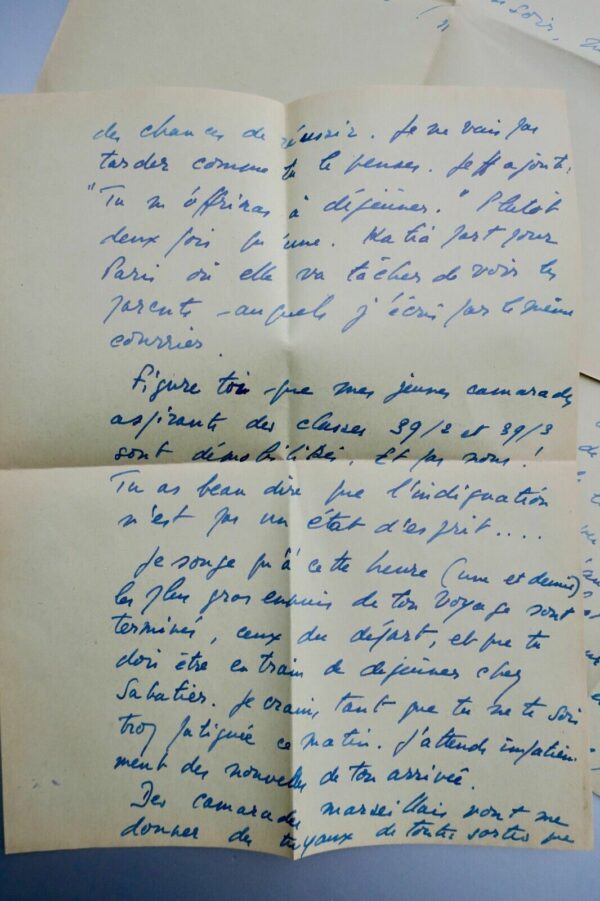 soir,
des chances de réussir. Je ne vais pas
tarder comme tu le penses. Jeff ajoute:
"Tu m'offriras à déjeuner." Plutôt
deux fois qu'une. Katia part pour
Paris où elle va tâcher de voir les
parents - auxquels j'écris par le même
courrier.
Figure toi que mes jeunes camarades
aspirants des classes 39/2 et 39/3
sont démobilisés. Et pas nous!
Tu as beau dire que l'indignation
n'est pas un état d'esprit....
Je songe qu'à cette heure (une et demie)
les plus gros ennuis de ton voyage sont
terminés, ceux du départ, et que tu
dois être en train de déjeuner chez
Sabatier. Je crains tant que tu ne te sois
trop fatiguée ce matin. J'attends impatiem
ment des nouvelles de ton arrivée.
Des camarades marseillais vont me
donner des tuyaux de toutes sortes que